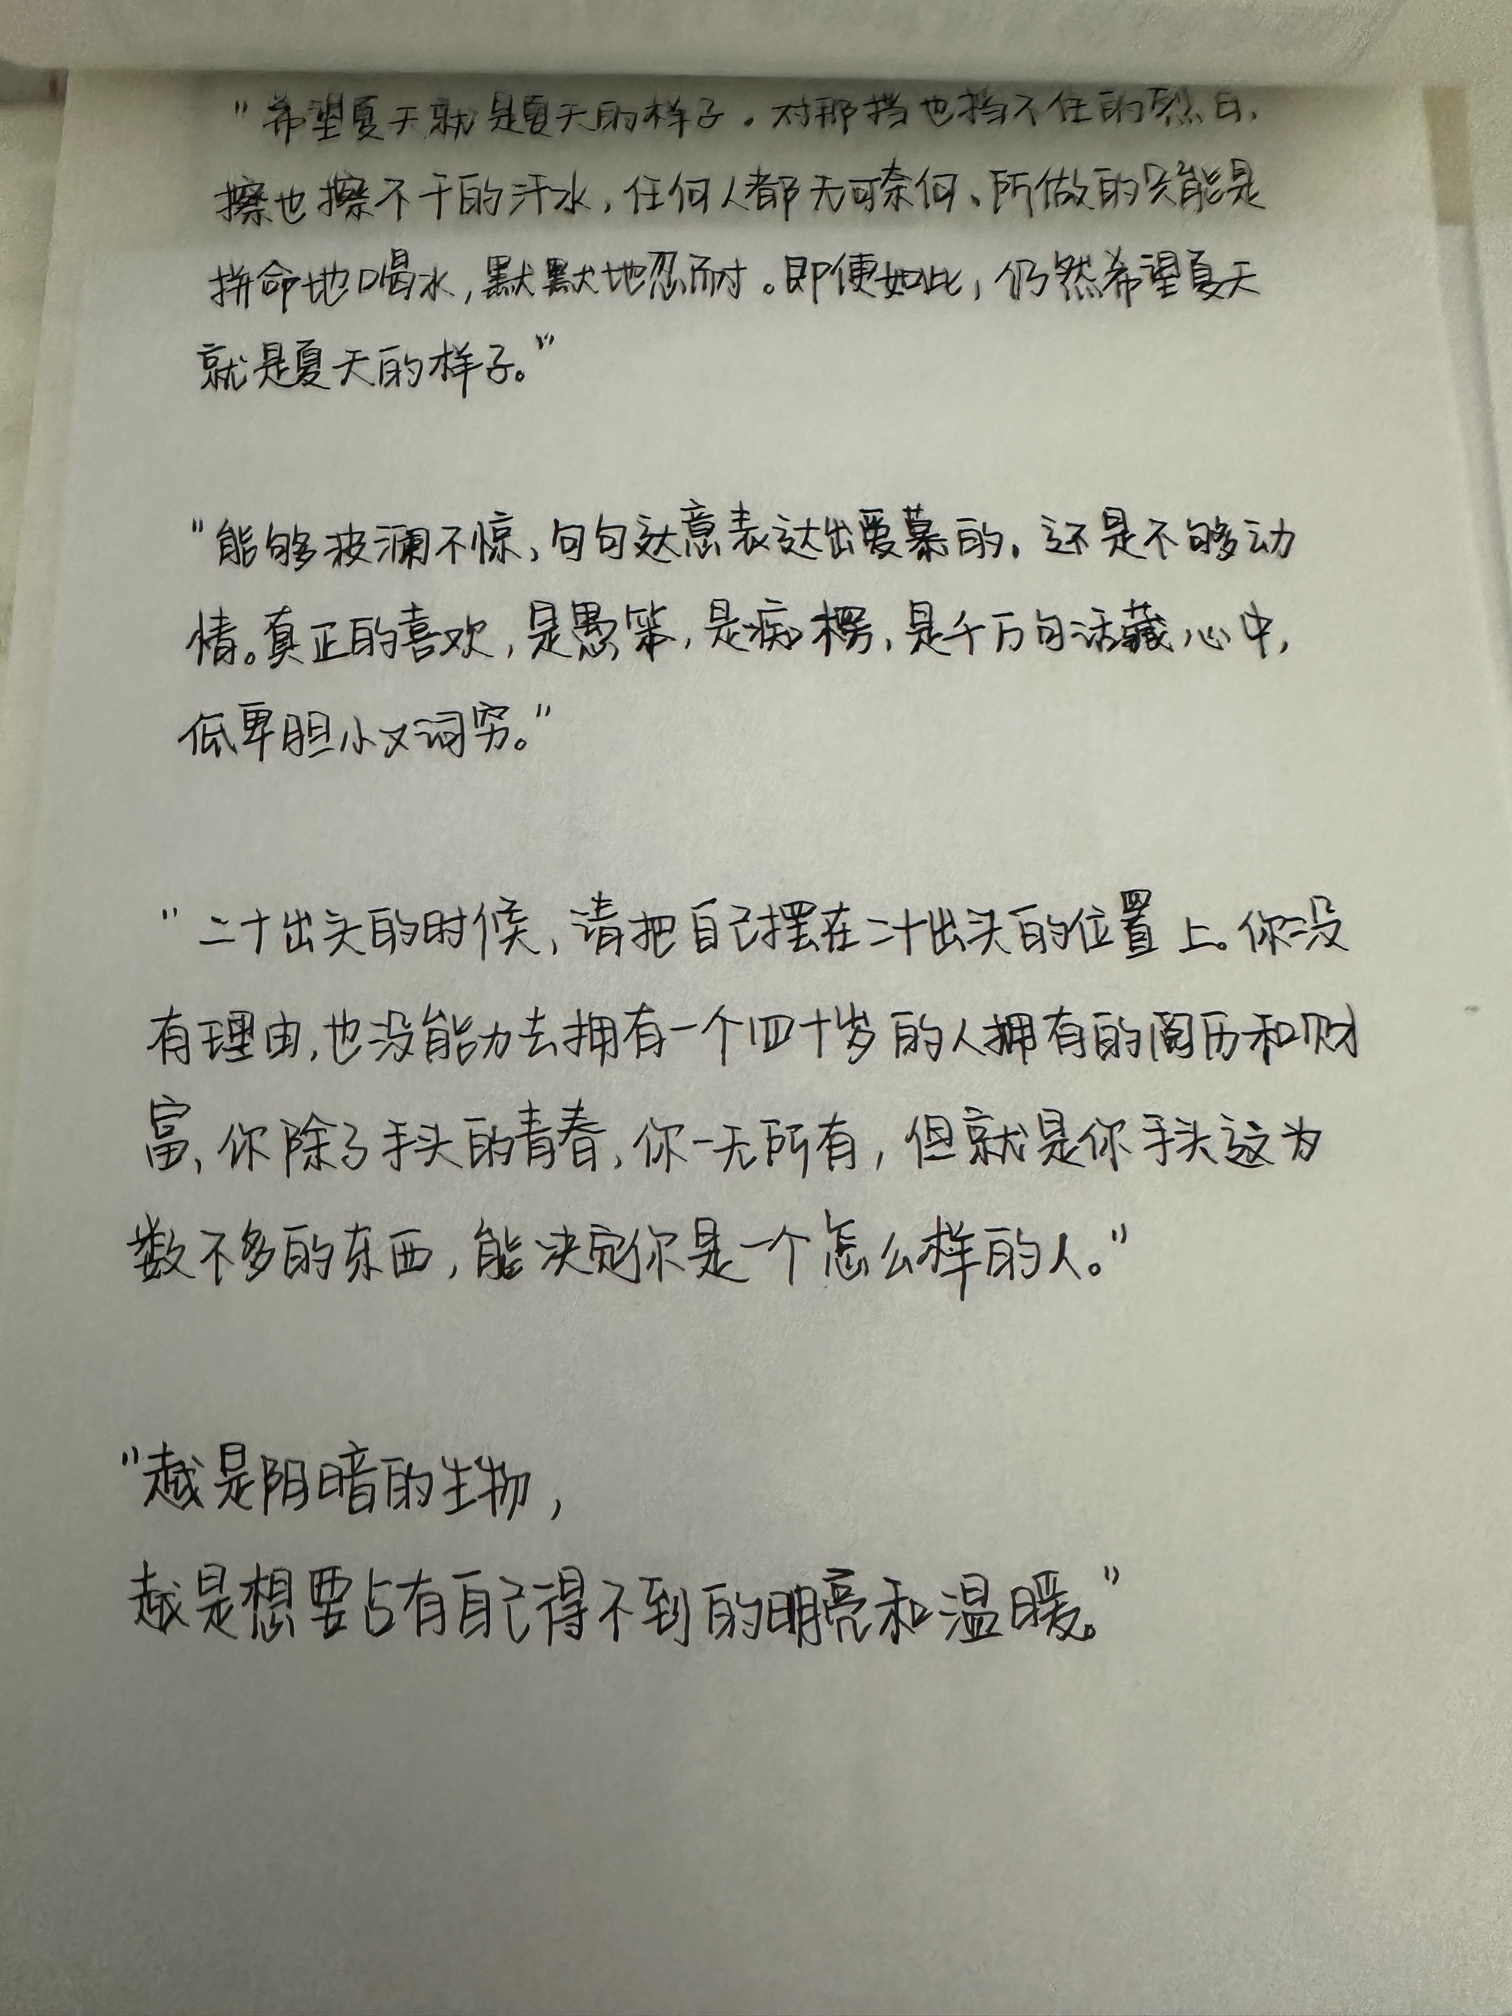 "希望夏天就是夏天的样子。对那挡也挡不住的烈日,
擦也擦不干的汗水,任何人都无可奈何、所做的只能是
拼命地喝水,默默地忍耐。即便如此,仍然希望夏天
就是夏天的样子。"
"能够波澜不惊,句句达意表达出爱慕的,还是不够动
情。真正的喜欢,是愚笨,是痴楞,是千万句话藏心中,
低卑胆小又词穷。"
"二十出头的时候,请把自己摆在二十出头的位置上。你没
有理由,也没能力去拥有一个四十岁的人拥有的阅历和财
富、你除了手头的青春,你一无所有,但就是你手头这为
数不多的东西,能决定你是一个怎么样的人。"
"越是阴暗的生物,
越是想要占有自己得不到的明亮和温暖。"